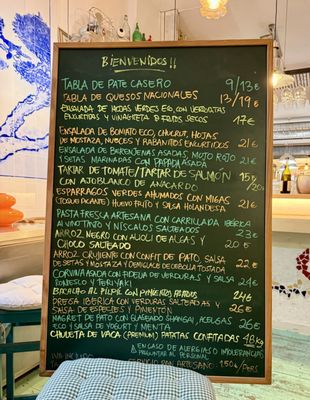 BIENVENIDOS!!
TABLA DE PATE CASERO 9/13€
TABLA DE QUESOS NACIONALES 13/19€
ENSALADA DE HOJAS VERDES ECO, CON VERDURITAS
ENCURTIDAS Y VINAGRETA D FRUTOS SECOS 17€
ENSALADA DE TOMATE ECO, CHUCRUT, HOJAS
DE MOSTAZA, NUECES Y RABANITOS ENCURTIDOS 21€
ENSALADA DE BERENJENAS ASADAS, MOJO ROJO
Y SETAS MARINADAS CON PAPADA ASADA 21€
TARTAR DE TOMATE/TARTAR DE SALMÓN 15€
CON AJOBLANCO DE ANACARDO /20€
ESPARRAGOS VERDES AHUMADOS CON MIGAS
(TOQUE PICANTE) HUEVO FRITO Y SALSA HOLANDESA 19€
PASTA FRESCA ARTESANA CON CARRILLADA IBERICA
AL VINO TINTO Y NISCALOS SALTEADOS 23€
ARROZ NEGRO CON ALIOLI DE ALGAS Y
CHOCO SALTEADO 20.5€
ARROZ CRUJIENTE CON CONFIT DE PATO, SALSA
DE SETAS Y MOSTAZA Y DE CEBOLLA TOSTADA 22€
CORVINA ASADA CON FIDEUA DE VERDURAS Y SALSA 24€
Y TERIYAKI
BACALAO AL PILPIL CON PIMIENTOS ASADOS 24€
PRESA IBERICA CON VERDURAS SALTEADAS Y
SALSA DE ESPECIES Y PIMENTÓN 25€
MAGRET DE PATO CON GLASEADO SHANGAI, ACELGAS
ECO Y SALSA DE YOGURT Y MENTA 26€
CHULETA DE VACA (PREMIUM) PATATAS CONFITADAS 48€ KG
EN CASO DE ALERGIAS O INTOLERANCIAS,
PREGUNTAR AL PERSONAL
IVA INCLUIDO
SERVICIO PAN ARTESANO: 1.50€/PERS